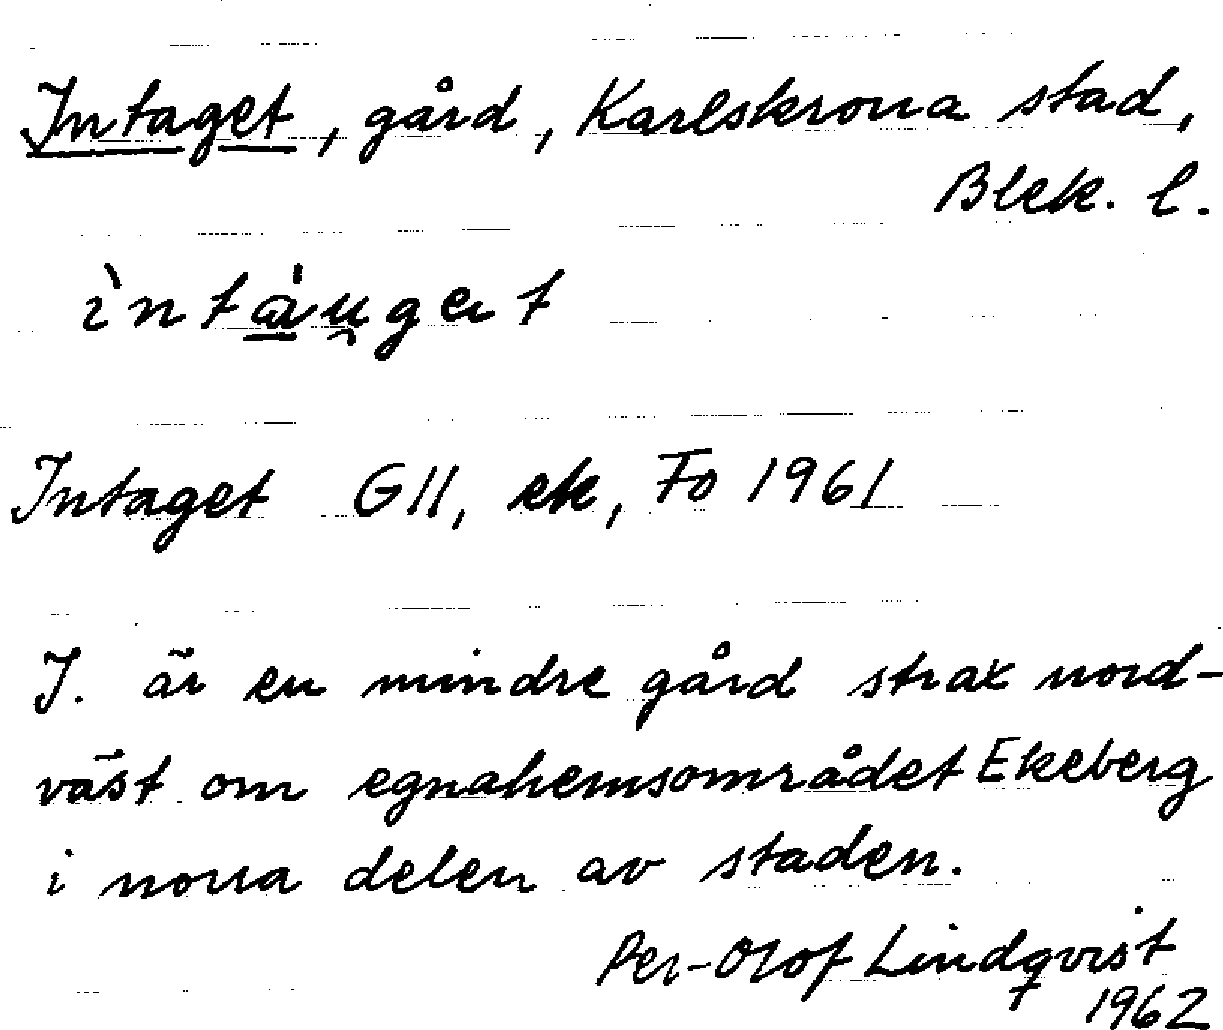 Intaget, gård, Karlskrona stad,
Blek. l.
Intaget G11, ek, Fo 1961
J. är en mindre gård strax nord-
väst om egnahemsområdet Ekeberg
i norra delen av staden.
Per-Olof Lindqvist
1962